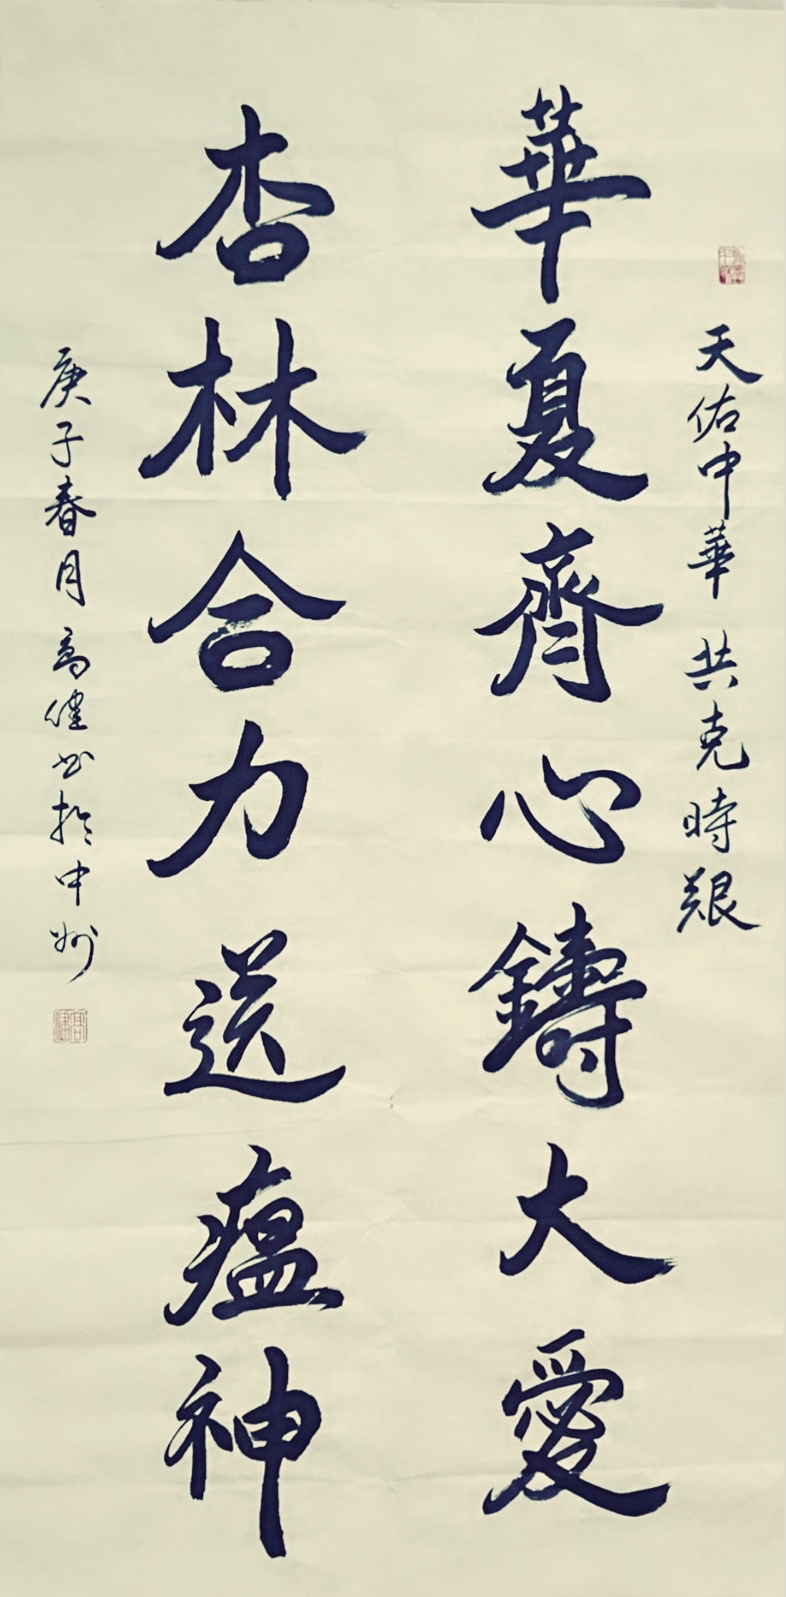 天佑中華 共克時艱
華夏齊心鑄大愛
杏林合力送瘟神
庚子春月高健書於中州
高健